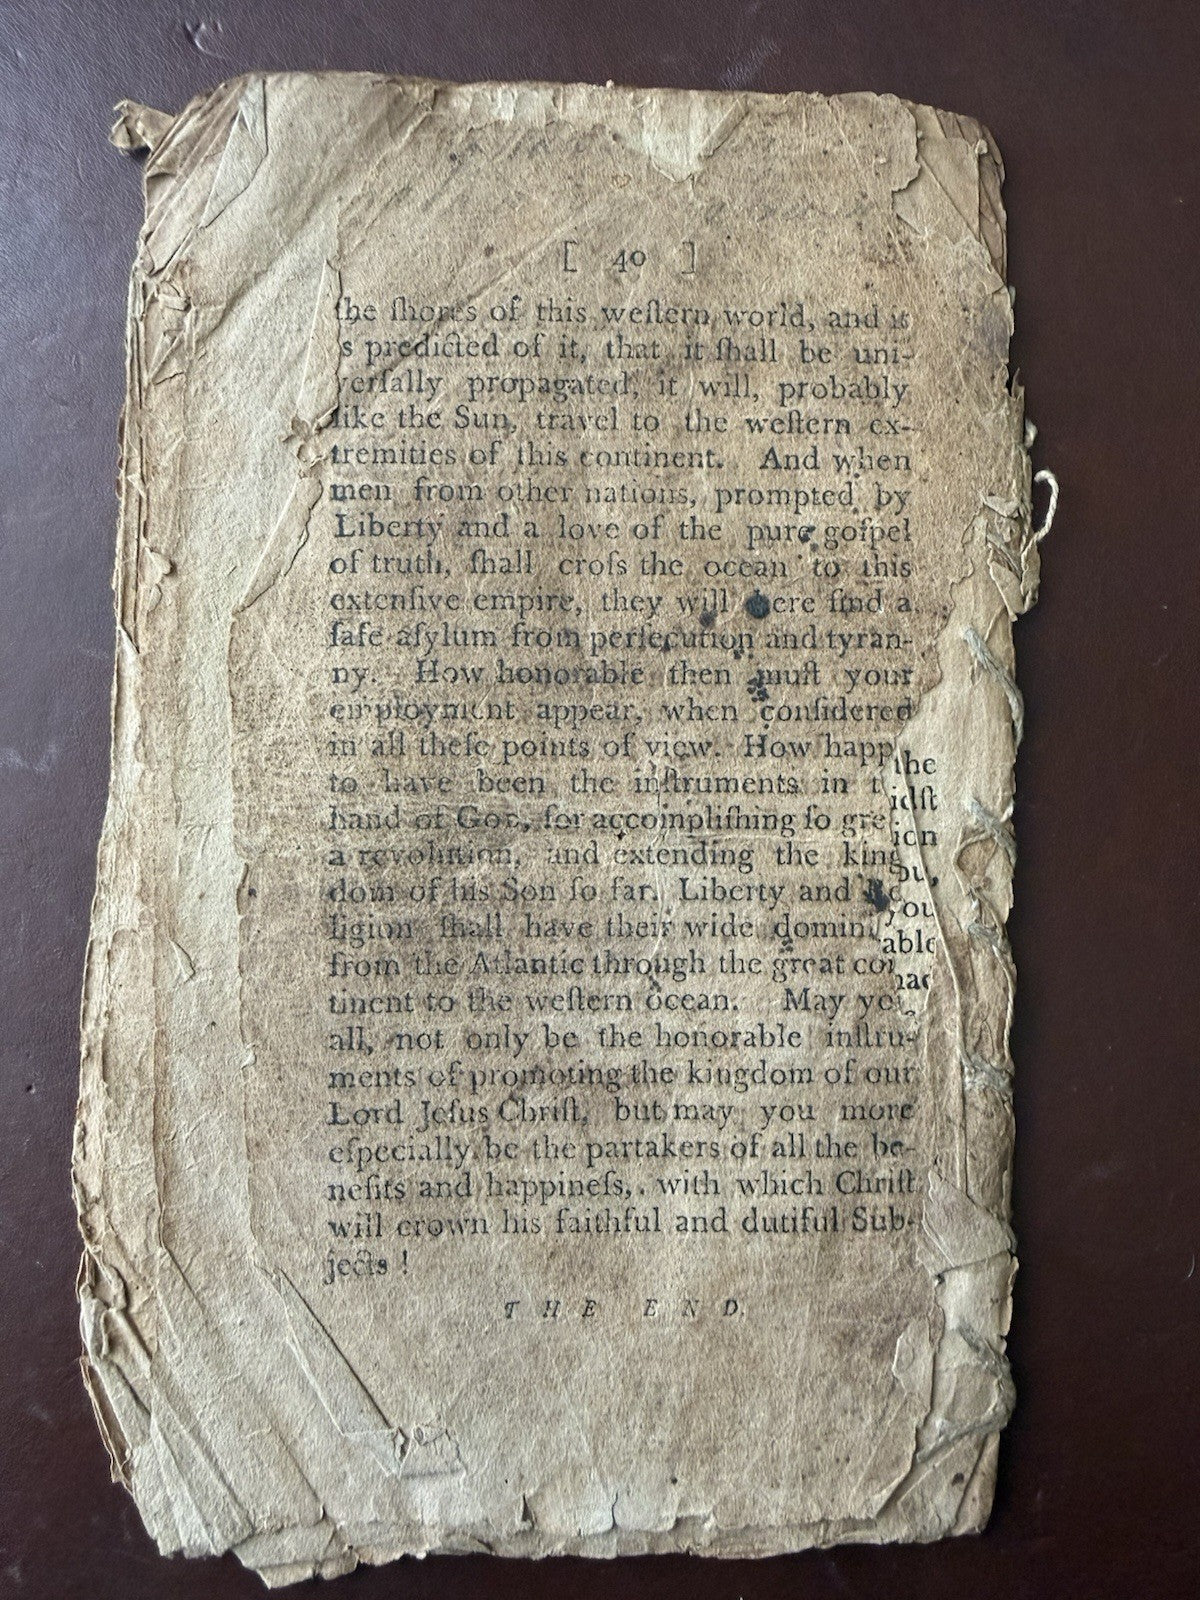 [ 40 ]
the ſhores of this weſtern world, and it
s predicted of it, that it ſhall be uni-
verſally propagated, it will, probably
like the Sun, travel to the weſtern ex-
tremities of this continent. And when
men from other nations, prompted by
Liberty and a love of the pure goſpel
of truth, ſhall croſs the ocean to this
extenſive empire, they will here find a
ſafe aſylum from perſecution and tyran-
ny. How honorable then muſt your
employment appear, when conſidered
in all theſe points of view. How happ
to have been the inſtruments in t
hand of God, for accompliſhing ſo gre
a revolution, and extending the king
dom of his Son ſo far. Liberty and Re
ligion ſhall have their wide domini
from the Atlantic through the great con
tinent to the weſtern ocean. May you
all, not only be the honorable inſtru-
ments of promoting the kingdom of our
Lord Jeſus Chriſt, but may you more
eſpecially be the partakers of all the be-
nefits and happineſs, with which Chriſt
will crown his faithful and dutiful Sub-
jects !
THE END.
the
idſt
ion
ou,
you
able